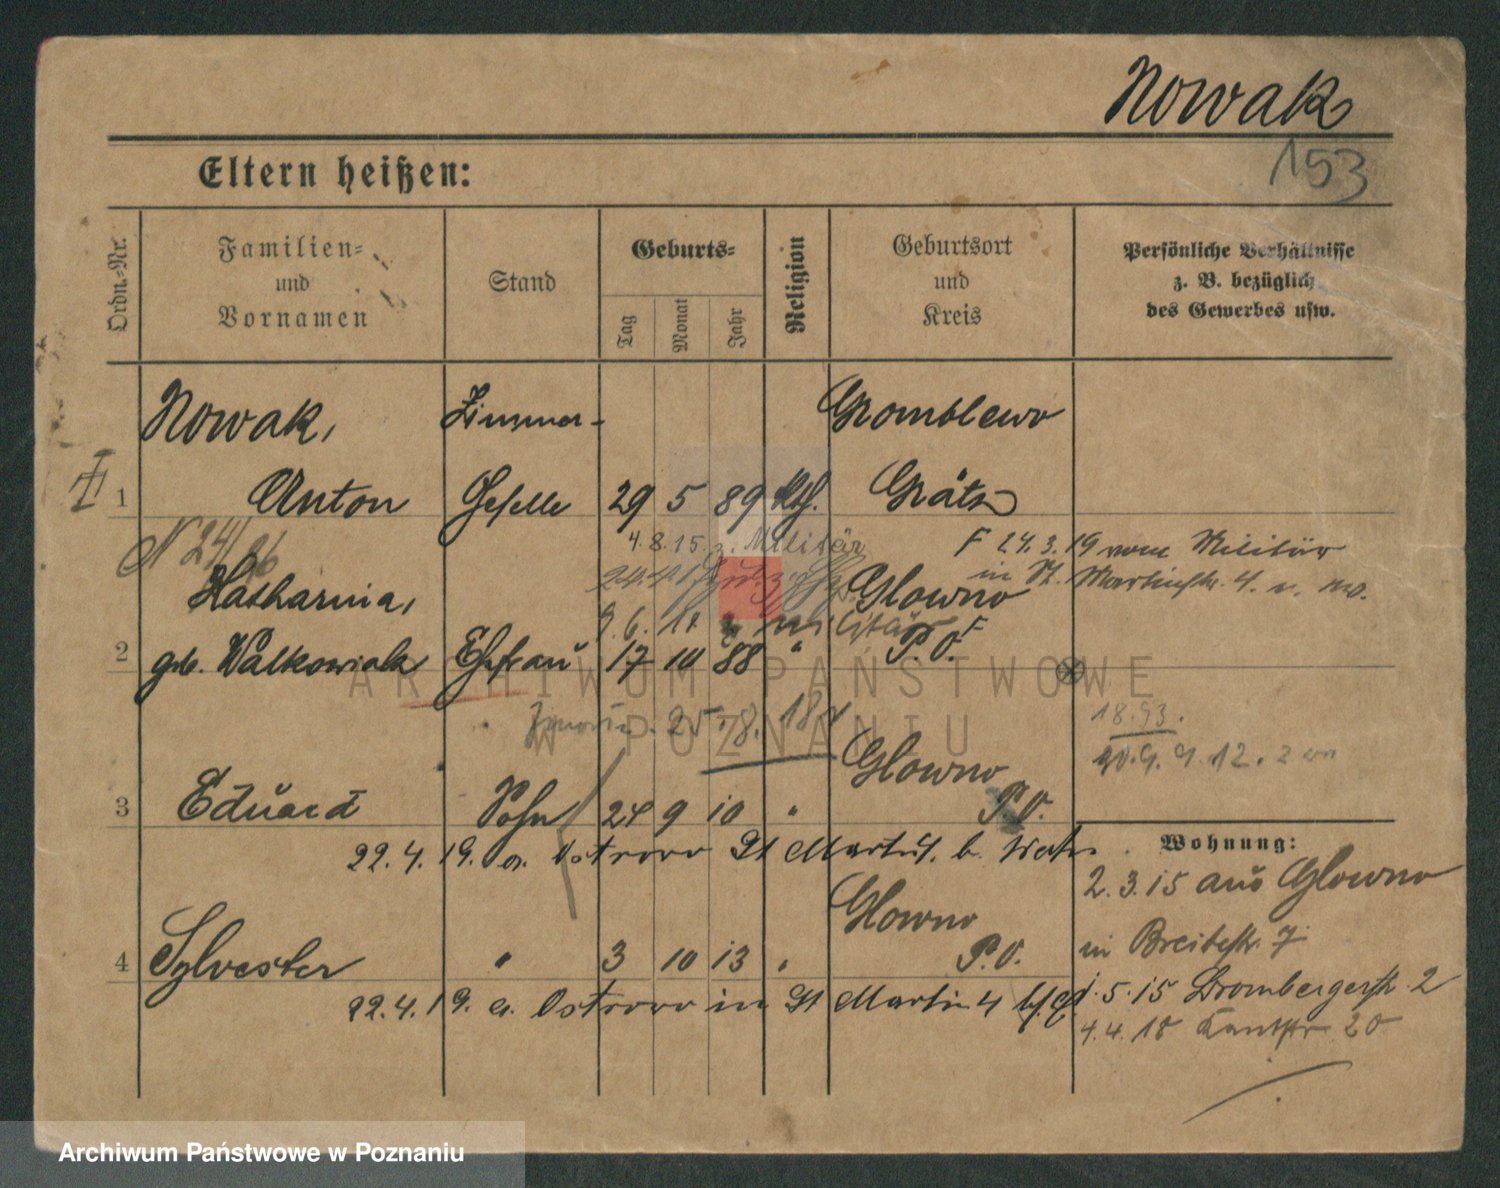 Nowak
153
Eltern heißen:
Ordn.-Nr.
Familien-
und
Vornamen
Stand
Geburts-
Tag
Monat
Jahr
Religion
Geburtsort
und
Kreis
Persönliche Verhältnisse
z. B. bezüglich
des Gewerbes usw.
Nowak, Zimmer- Gromblewo
1 Anton Geselle 29 5 89 Kth. Grätz
N 24/
4.8.15 z. Militär F 24.3.19 vom Militär
in St. Martinstr. 4
Katharina, Glowno
9.6. Militär F
2 geb. Walkowiak Ehefrau 17 10 88 " P.O.
25.8.
18.93.
Glowno
3 Eduard Sohn 24 9 10 " P.O.
22.4.19. a. Ostrowo St Martinstr. b.
Wohnung:
2.3.15 aus Glowno
Glowno
in Breitestr. 7
4 Sylvester " 3 10 13 " P.O.
1.5.15 Brombergerstr. 2
22.4.19. a. Ostrowo in St Martin 4
4.4.18 Kantstr. 20
ARCHIWUM PAŃSTWOWE
W POZNANIU
Archiwum Państwowe w Poznaniu